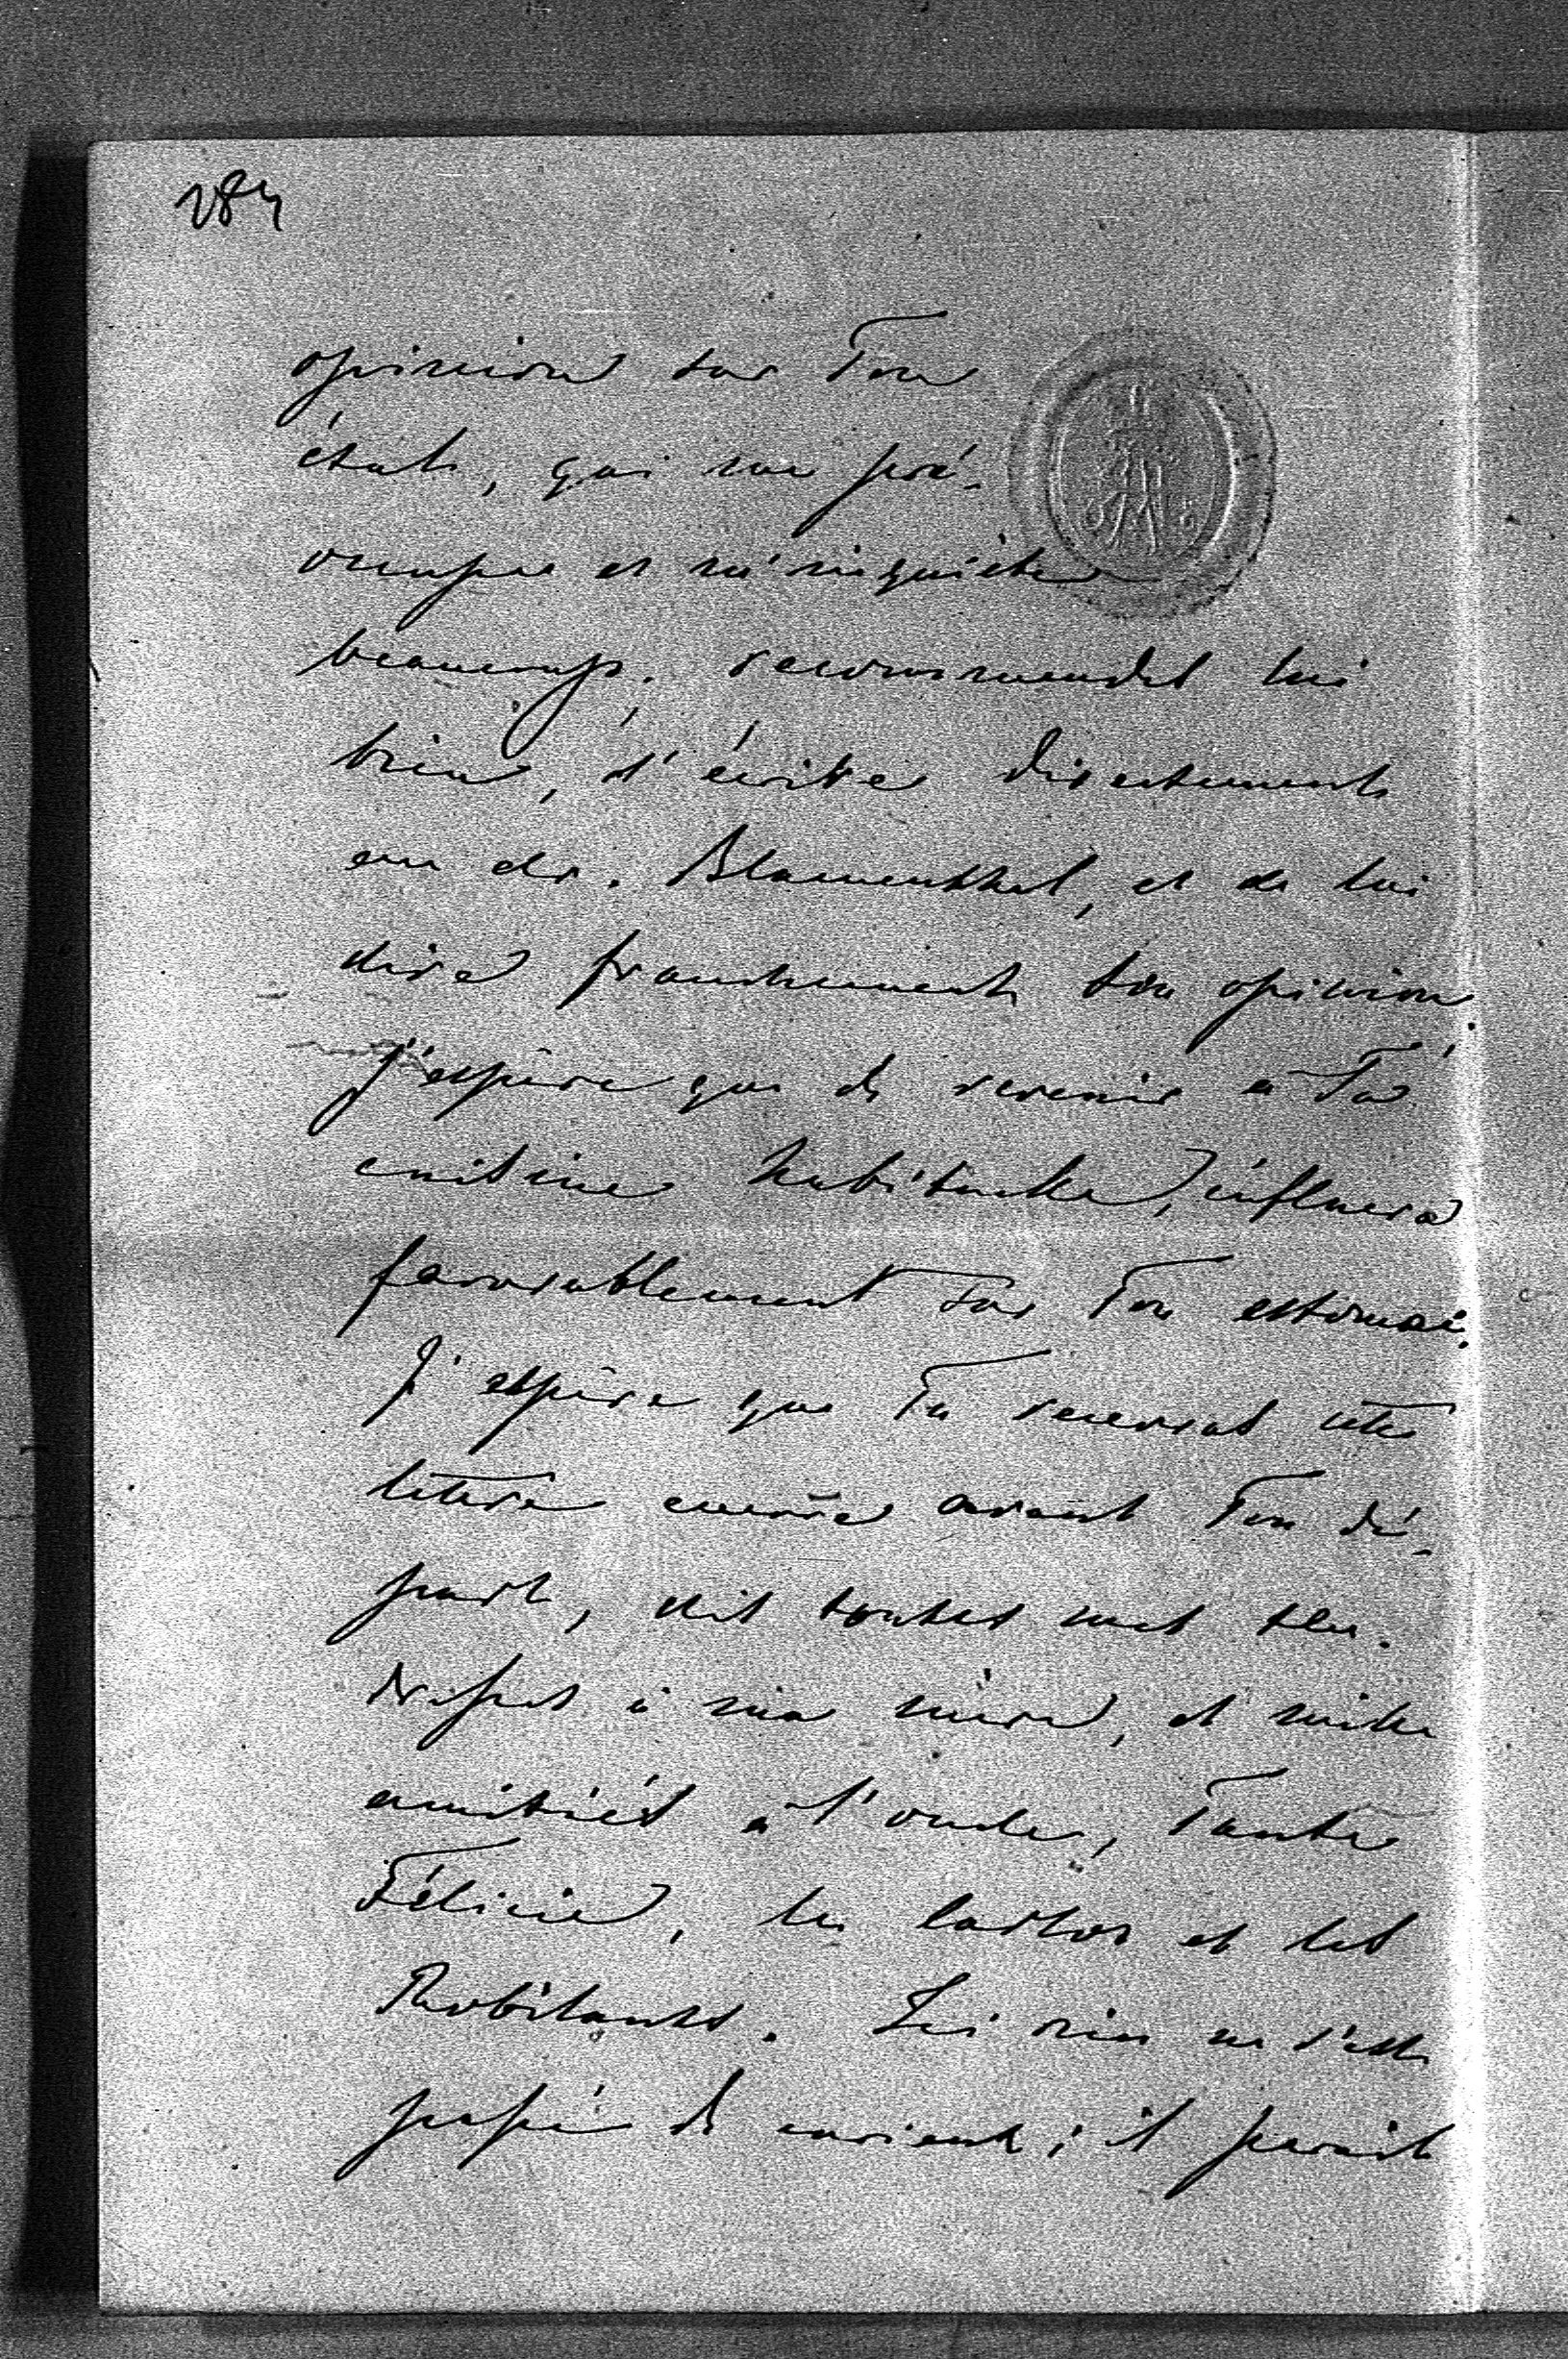 284
opinion sur Ton
état, qui me pré-
occupe et m'inquiète
beaucoup; recommendes lui
bien, d'écrire directement
au dr. Blumenthal, et de lui
dire franchement son opinion.
J'espère que de revenir à Ta
cuisine habituelle, influera
favorablement sur Ton estomac.
J'espère que Tu recevras cette
lettre encore avant Ton dé-
part, dis toutes mes ten-
dresses à ma mère, et mille
amitiés à l'oncle, Tante
Félicie, les et les
Robilants. Ici rien ne s'est
passé de curieux; il parait